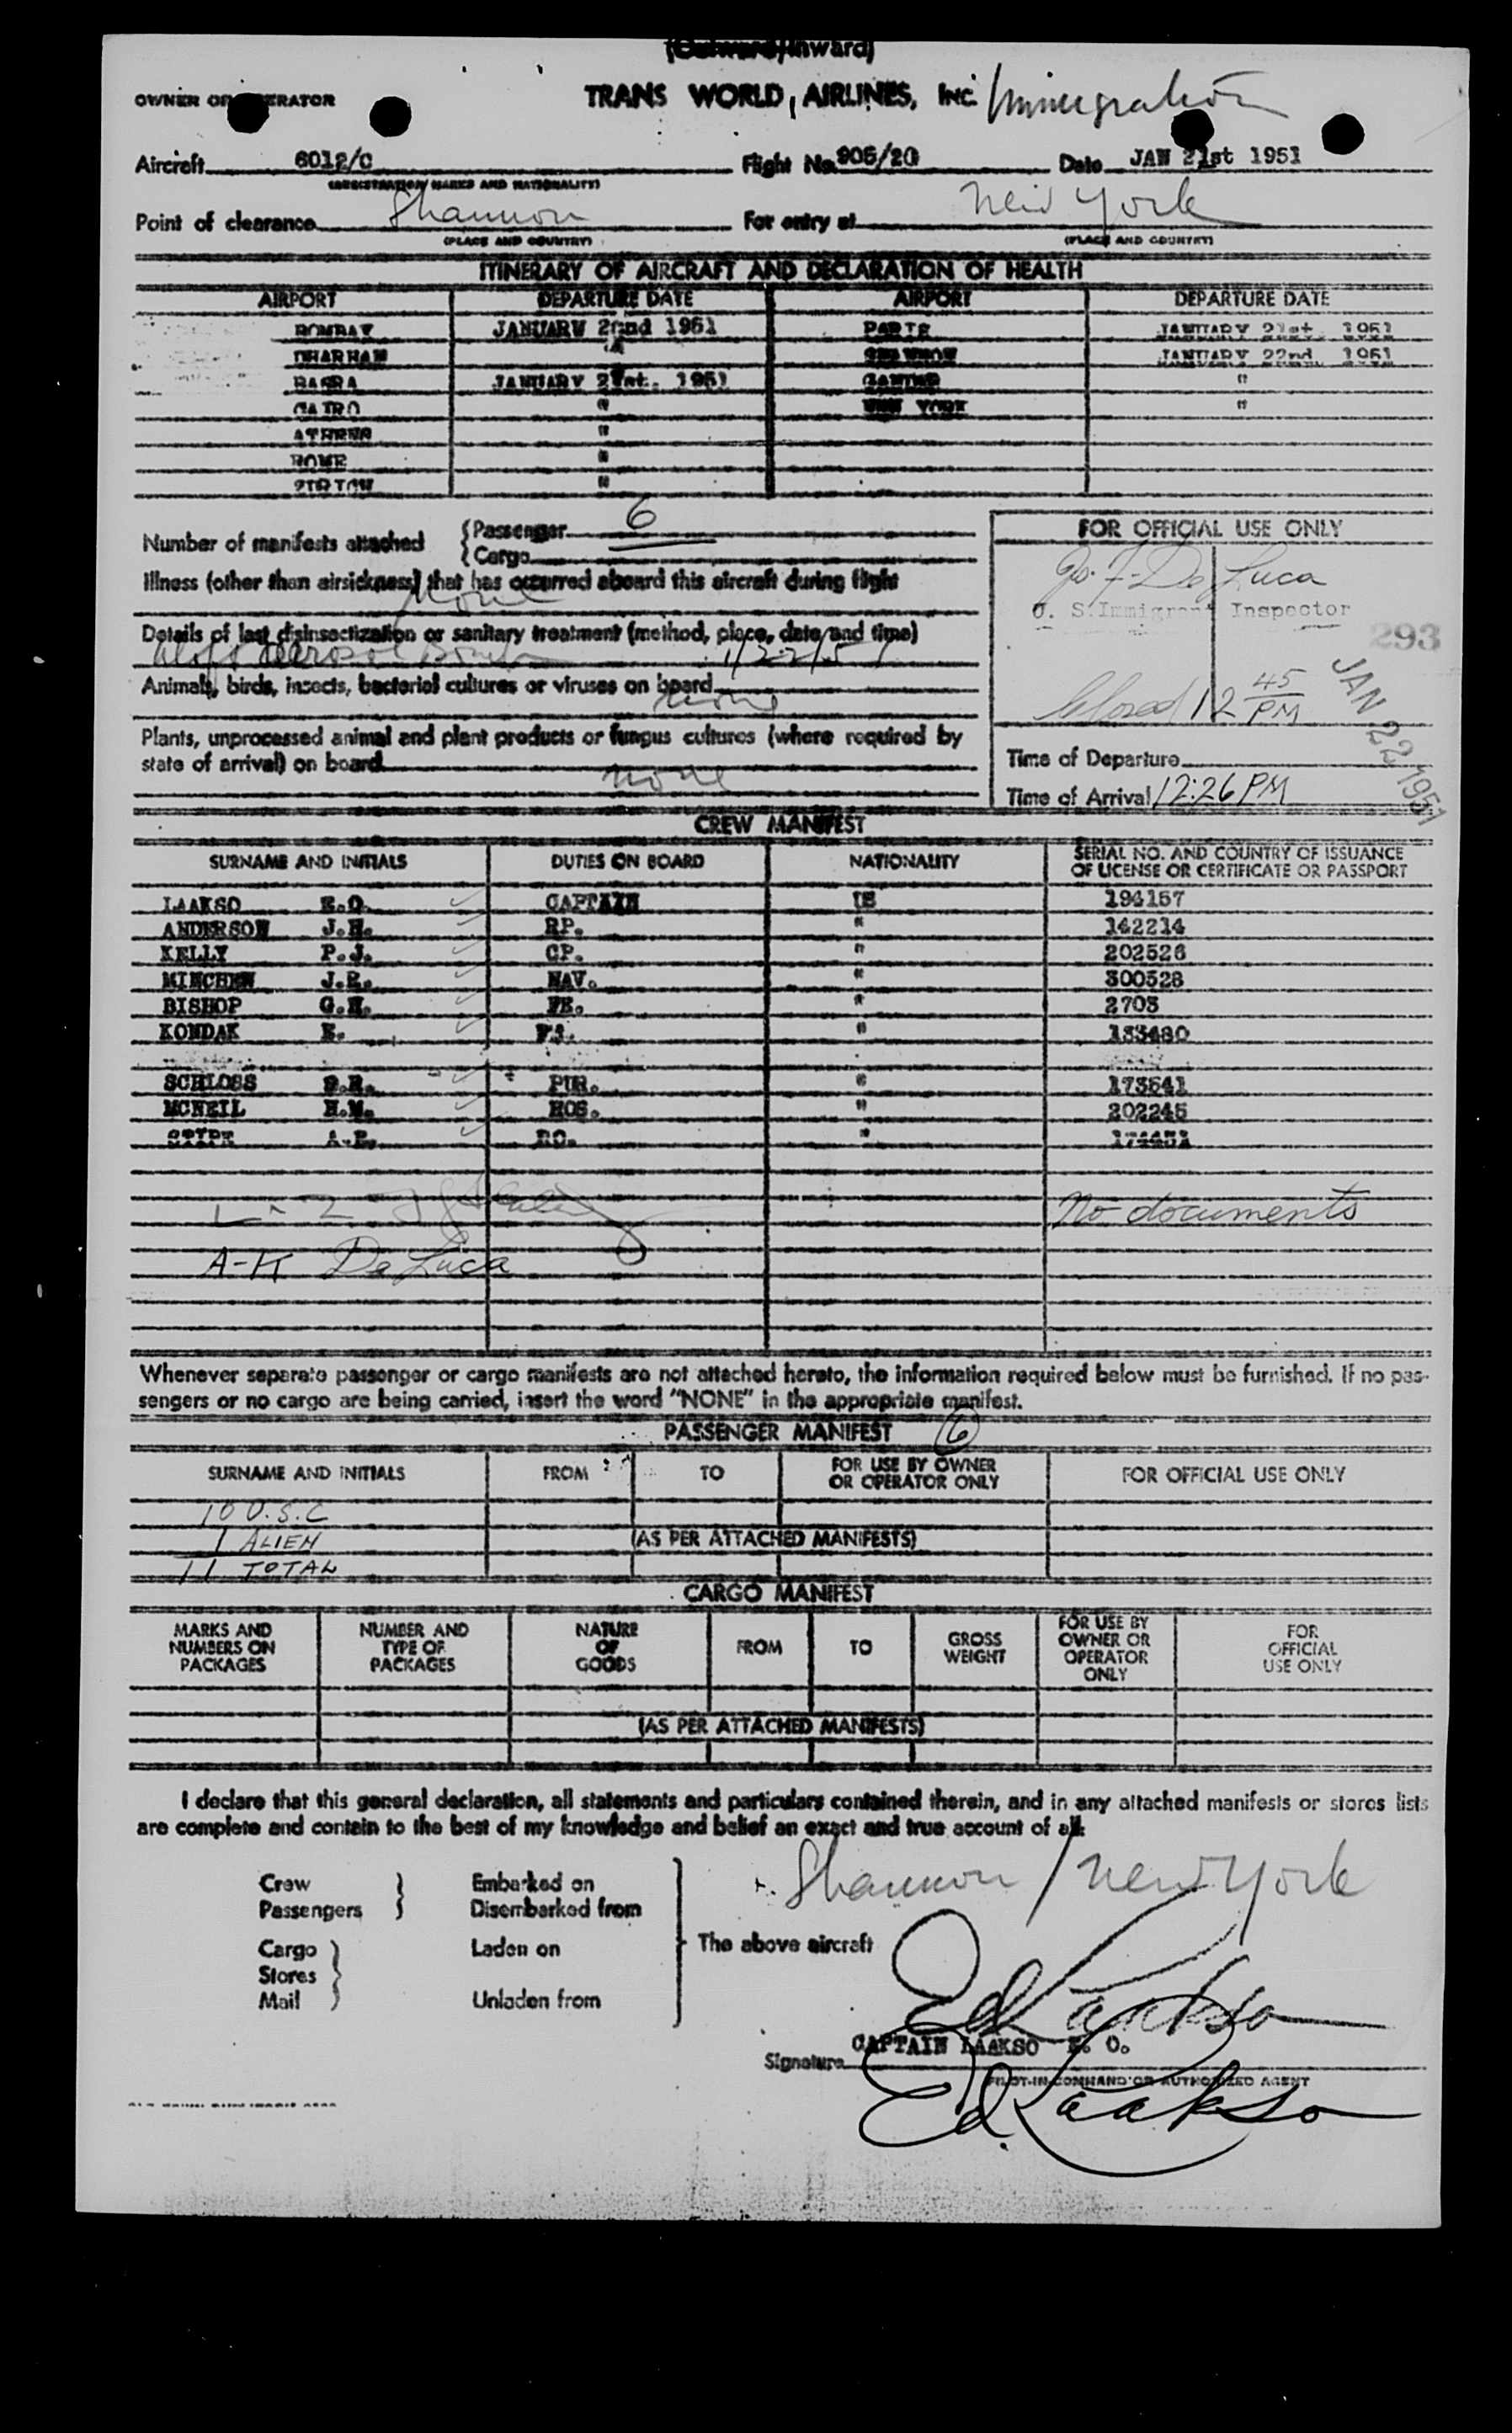 (Outward/Inward)
OWNER OR OPERATOR TRANS WORLD AIRLINES, INC. Immigration
Aircraft 6012/C Flight No. 905/20 Date JAN 21st 1951
(REGISTRATION MARKS AND NATIONALITY)
Point of clearance Shannon For entry at New York
(PLACE AND COUNTRY) (PLACE AND COUNTRY)
ITINERARY OF AIRCRAFT AND DECLARATION OF HEALTH
AIRPORT DEPARTURE DATE AIRPORT DEPARTURE DATE
BOMBAY JANUARY 1951 PARIS JANUARY 21st. 1951
DHARHAN SHANNON JANUARY 22nd 1951
BASRA JANUARY 21st. 1951 GANDER "
CAIRO " NEW YORK "
ATHENS "
ROME "
"
Number of manifests attached {Passenger 6
{Cargo
Illness (other than airsickness) that has occurred aboard this aircraft during flight
None
Details of last disinsectization or sanitary treatment (method, place, date and time)
Aerosol Bomb 1/22/51
Animals, birds, insects, bacterial cultures or viruses on board
none
Plants, unprocessed animal and plant products or fungus cultures (where required by
state of arrival) on board
none
FOR OFFICIAL USE ONLY
De Luca
U. S. Immigrant Inspector
293
Closed 12 45 PM
JAN 22 1951
Time of Departure
Time of Arrival 12:26 PM
CREW MANIFEST
SURNAME AND INITIALS DUTIES ON BOARD NATIONALITY SERIAL NO. AND COUNTRY OF ISSUANCE
OF LICENSE OR CERTIFICATE OR PASSPORT
LAAKSO E.O. CAPTAIN US 194157
ANDERSON J.H. RP. " 142214
KELLY P.J. CP. " 202526
MINCHEW J.R. NAV. " 300528
BISHOP G.H. FE. " 2703
KONDAK E. FS. " 133480
SCHLOSS PUR. " 173541
MCNEIL H.M. HOS. " 202245
A. RO. "
L-Z No documents
A-K De Luca
Whenever separate passenger or cargo manifests are not attached hereto, the information required below must be furnished. If no pas-
sengers or no cargo are being carried, insert the word "NONE" in the appropriate manifest.
PASSENGER MANIFEST 6
SURNAME AND INITIALS FROM TO FOR USE BY OWNER
OR OPERATOR ONLY FOR OFFICIAL USE ONLY
10 U.S.C
1 ALIEN (AS PER ATTACHED MANIFESTS)
11 TOTAL
CARGO MANIFEST
MARKS AND
NUMBERS ON
PACKAGES NUMBER AND
TYPE OF
PACKAGES NATURE
OF
GOODS FROM TO GROSS
WEIGHT FOR USE BY
OWNER OR
OPERATOR
ONLY FOR
OFFICIAL
USE ONLY
(AS PER ATTACHED MANIFESTS)
I declare that this general declaration, all statements and particulars contained therein, and in any attached manifests or stores lists
are complete and contain to the best of my knowledge and belief an exact and true account of all:
Shannon / New York
Crew } Embarked on
Passengers } Disembarked from
Cargo } Laden on The above aircraft
Stores
Mail } Unladen from
Ed Laakso
Signature CAPTAIN LAAKSO E. O.
PILOT-IN-COMMAND OR AUTHORIZED AGENT
Ed. Laakso